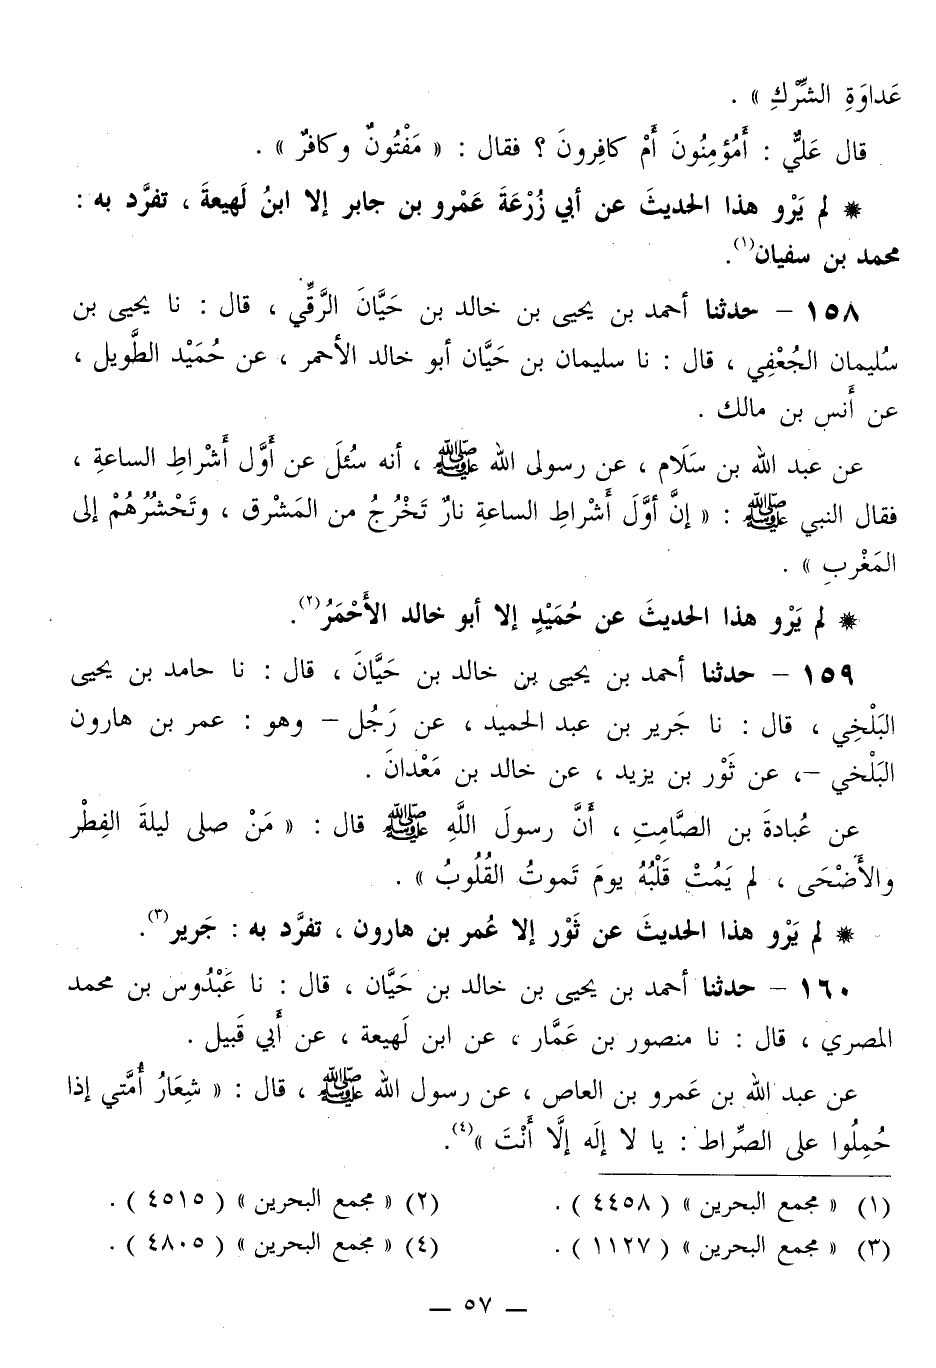 عَداوَةِ الشِّرْكِ » .
قال عَليٌّ : أَمُؤمِنُونَ أَمْ كافِرونَ ؟ فقال : « مَفْتُونٌ وكافرٌ » .
* لم يَرْو هذا الحديثَ عن أبي زُرْعَةَ عَمْرو بن جابر إلا ابنُ لَهيعةَ ، تفرَّد به :
محمد بن سفيان(١).
١٥٨ – حدثنا أحمد بن يحيى بن خالد بن حَيَّانَ الرَّقِّي ، قال : نا يحيى بن
سُليمان الجُعْفِي ، قال : نا سليمان بن حَيَّان أبو خالد الأحمر ، عن حُمَيْد الطَّويل ،
عن أَنس بن مالك .
عن عبد الله بن سَلَام ، عن رسولى الله ﷺ ، أنه سُئلَ عن أوَّل أَشْراطِ الساعةِ ،
فقال النبي ﷺ : « إنَّ أوَّلَ أَشْراطِ الساعةِ نارٌ تَخْرُجُ من المَشْرق ، وتَحْشُرُهُمْ إلى
المَغْربِ » .
* لم يَرْو هذا الحديثَ عن حُمَيْدٍ إلا أبو خالد الأَحْمَرُ(٢).
١٥٩ – حدثنا أحمد بن يحيى بن خالد بن حَيَّانَ ، قال : نا حامد بن يحيى
البَلْخِي ، قال : نا جَرير بن عبد الحميد ، عن رَجُل – وهو : عمر بن هارون
البَلْخي –، عن ثَوْر بن يزيد ، عن خالد بن مَعْدانَ .
عن عُبادةَ بن الصَّامِتِ ، أَنَّ رسولَ اللَّهِ ﷺ قال : « مَنْ صلى ليلةَ الفِطْر
والأَضْحَى ، لم يَمُتْ قَلْبُهُ يومَ تَموتُ القُلُوبُ » .
* لم يَرْو هذا الحديثَ عن ثَوْر إلا عُمر بن هارون ، تفرَّد به : جَرير(٣).
١٦٠ – حدثنا أحمد بن يحيى بن خالد بن حَيَّان ، قال : نا عَبْدُوس بن محمد
المصري ، قال : نا منصور بن عَمَّار ، عن ابن لَهيعة ، عن أَبي قَبيل .
عن عبد الله بن عَمرو بن العاص ، عن رسول الله ﷺ ، قال : « شِعَارُ أُمَّتي إذا
حُمِلُوا على الصِّراط : يا لا إلَه إلَّا أَنْتَ »(٤).
(١) « مجمع البحرين » ( ٤٤٥٨ ) . (٢) « مجمع البحرين » ( ٤٥١٥ ) .
(٣) « مجمع البحرين » ( ١١٢٧ ) . (٤) « مجمع البحرين » ( ٤٨٠٥ ) .
— ٥٧ —